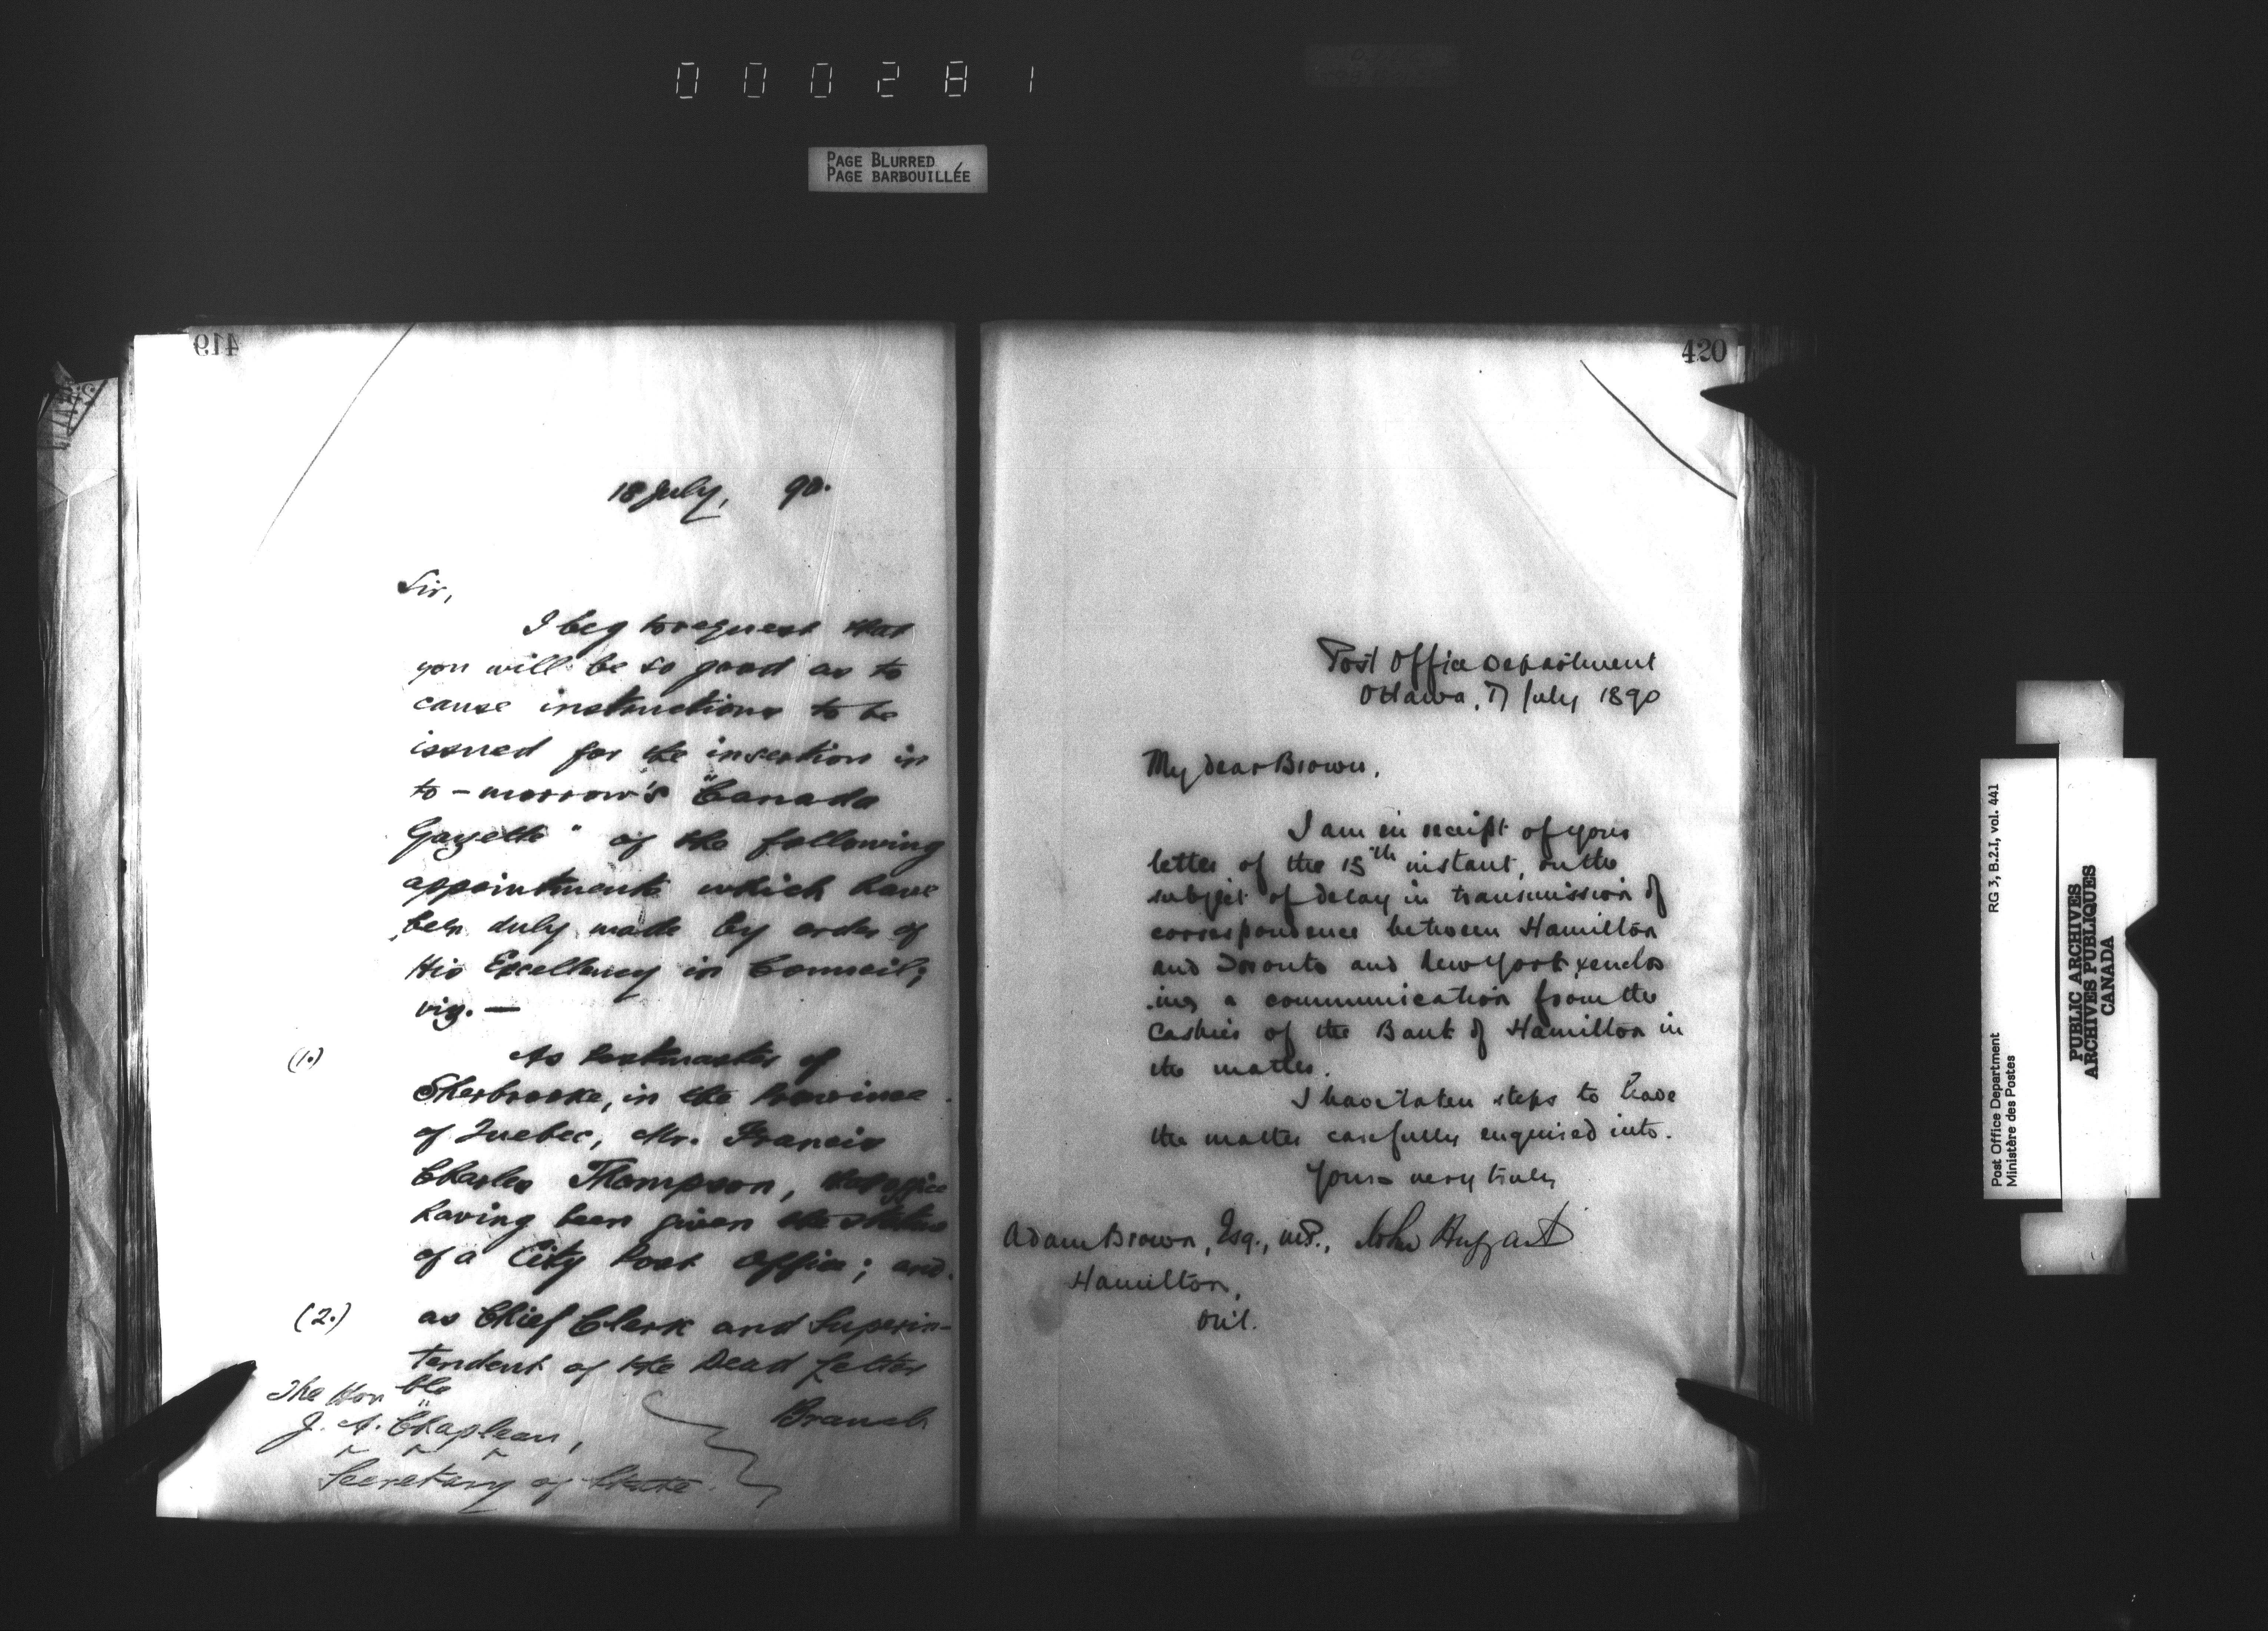 000281
PAGE BLURRED
PAGE BARBOUILLÉE
419
18 July, 90.
Sir,
I beg to request that
you will be so good as to
cause instructions to be
issued for the insertion in
to-morrow's "Canada
Gazette" of the following
appointments which have
been duly made by order of
His Excellency in Council;
viz. —
(1.) As Postmaster of
Sherbrooke, in the Province
of Quebec, Mr. Francis
Charles Thompson, that office
having been given the status
of a City Post Office; and
(2.) as Chief Clerk and Superin-
tendent of the Dead Letter
Branch
The Honble
J. A. Chapleau,
Secretary of State.
420
Post Office Department
Ottawa, 17 July 1890
My dear Brown,
I am in receipt of your
letter of the 15th instant, on the
subject of delay in transmission of
correspondence between Hamilton
and Toronto and New York, enclos
ing a communication from the
Cashier of the Bank of Hamilton in
the matter.
I have taken steps to have
the matter carefully enquired into.
Yours very truly
John Haggart
Adam Brown, Esq., M.P.,
Hamilton,
Ont.
Post Office Department
Ministère des Postes
RG 3, B.2.I, vol. 441
PUBLIC ARCHIVES
ARCHIVES PUBLIQUES
CANADA